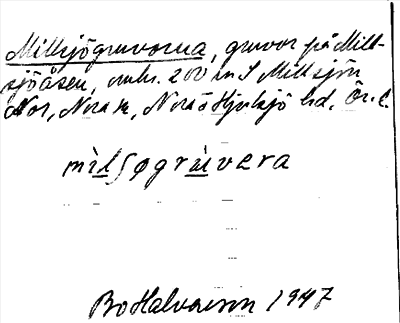 Millsjögruvorna, gruvor på Mill-
sjöåsen, omkr. 200 m S Millsjön
Nor, Nora sn, Nora o Hjulsjö hd, Ör. l.
mìlʃøgràivera
Bo Halvarson 1947